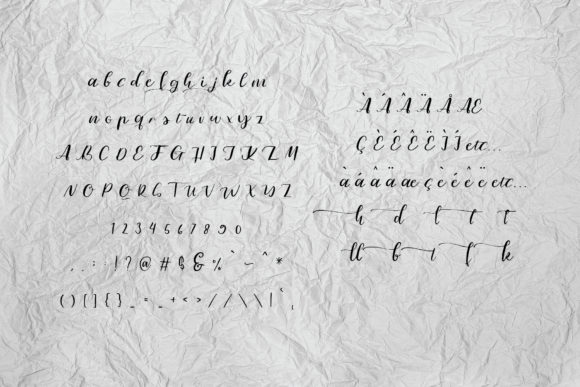 a b c d e f g h i j k l m
n o p q r s t u v w x y z
A B C D E F G H I J K L M
N O P Q R S T U V W X Y Z
1 2 3 4 5 6 7 8 9 0
, . : ; ! ? @ # $ & % ` ~ ^ *
( ) [ ] { } - = _ + < > / / \ \ |
À Á Â Ä Å Æ
Ç È É Ê Ë Ì Í etc...
à á â ä æ ç è é ê ë etc...
h d t t t
ll b i f k